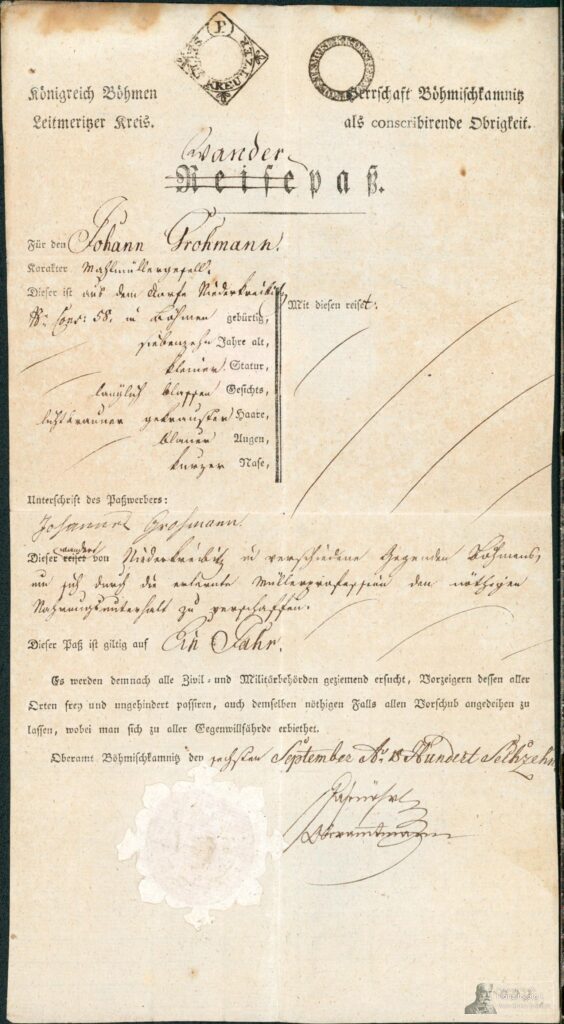 Königreich Böhmen
Leitmeritzer Kreis.
Herrschaft Böhmischkamnitz
als conscribirende Obrigkeit.
Wander
Reisepaß.
Für den Johann Grohmann.
Karakter Mahlmüllergesell.
Dieser ist aus dem Dorfe Niederkreibitz
Nr. Cons: 58. in Böhmen gebürtig,
siebenzehn Jahre alt,
kleiner Statur,
länglich blassen Gesichts,
lichtbrauner gekrauster Haare,
blauer Augen,
kurzer Nase,
Mit diesen reiset:
Unterschrift des Paßwerbers:
Johannes Grohmann.
wandert
Dieser reiset von Niederkreibitz in verschiedene Gegenden Böhmens,
um sich durch die erlernte Müllerprofession den nöthigen
Nahrungsunterhalt zu verschaffen.
Dieser Paß ist giltig auf Ein Jahr.
Es werden demnach alle Zivil- und Militärbehörden geziemend ersucht, Vorzeigern dessen aller
Orten frey und ungehindert passiren, auch demselben nöthigen Falls allen Vorschub angedeihen zu
lassen, wobei man sich zu aller Gegenwillfährde erbiethet.
Oberamt Böhmischkamnitz den sechsten September Ao. 18 Hundert Sechzehn
Oberamtmann